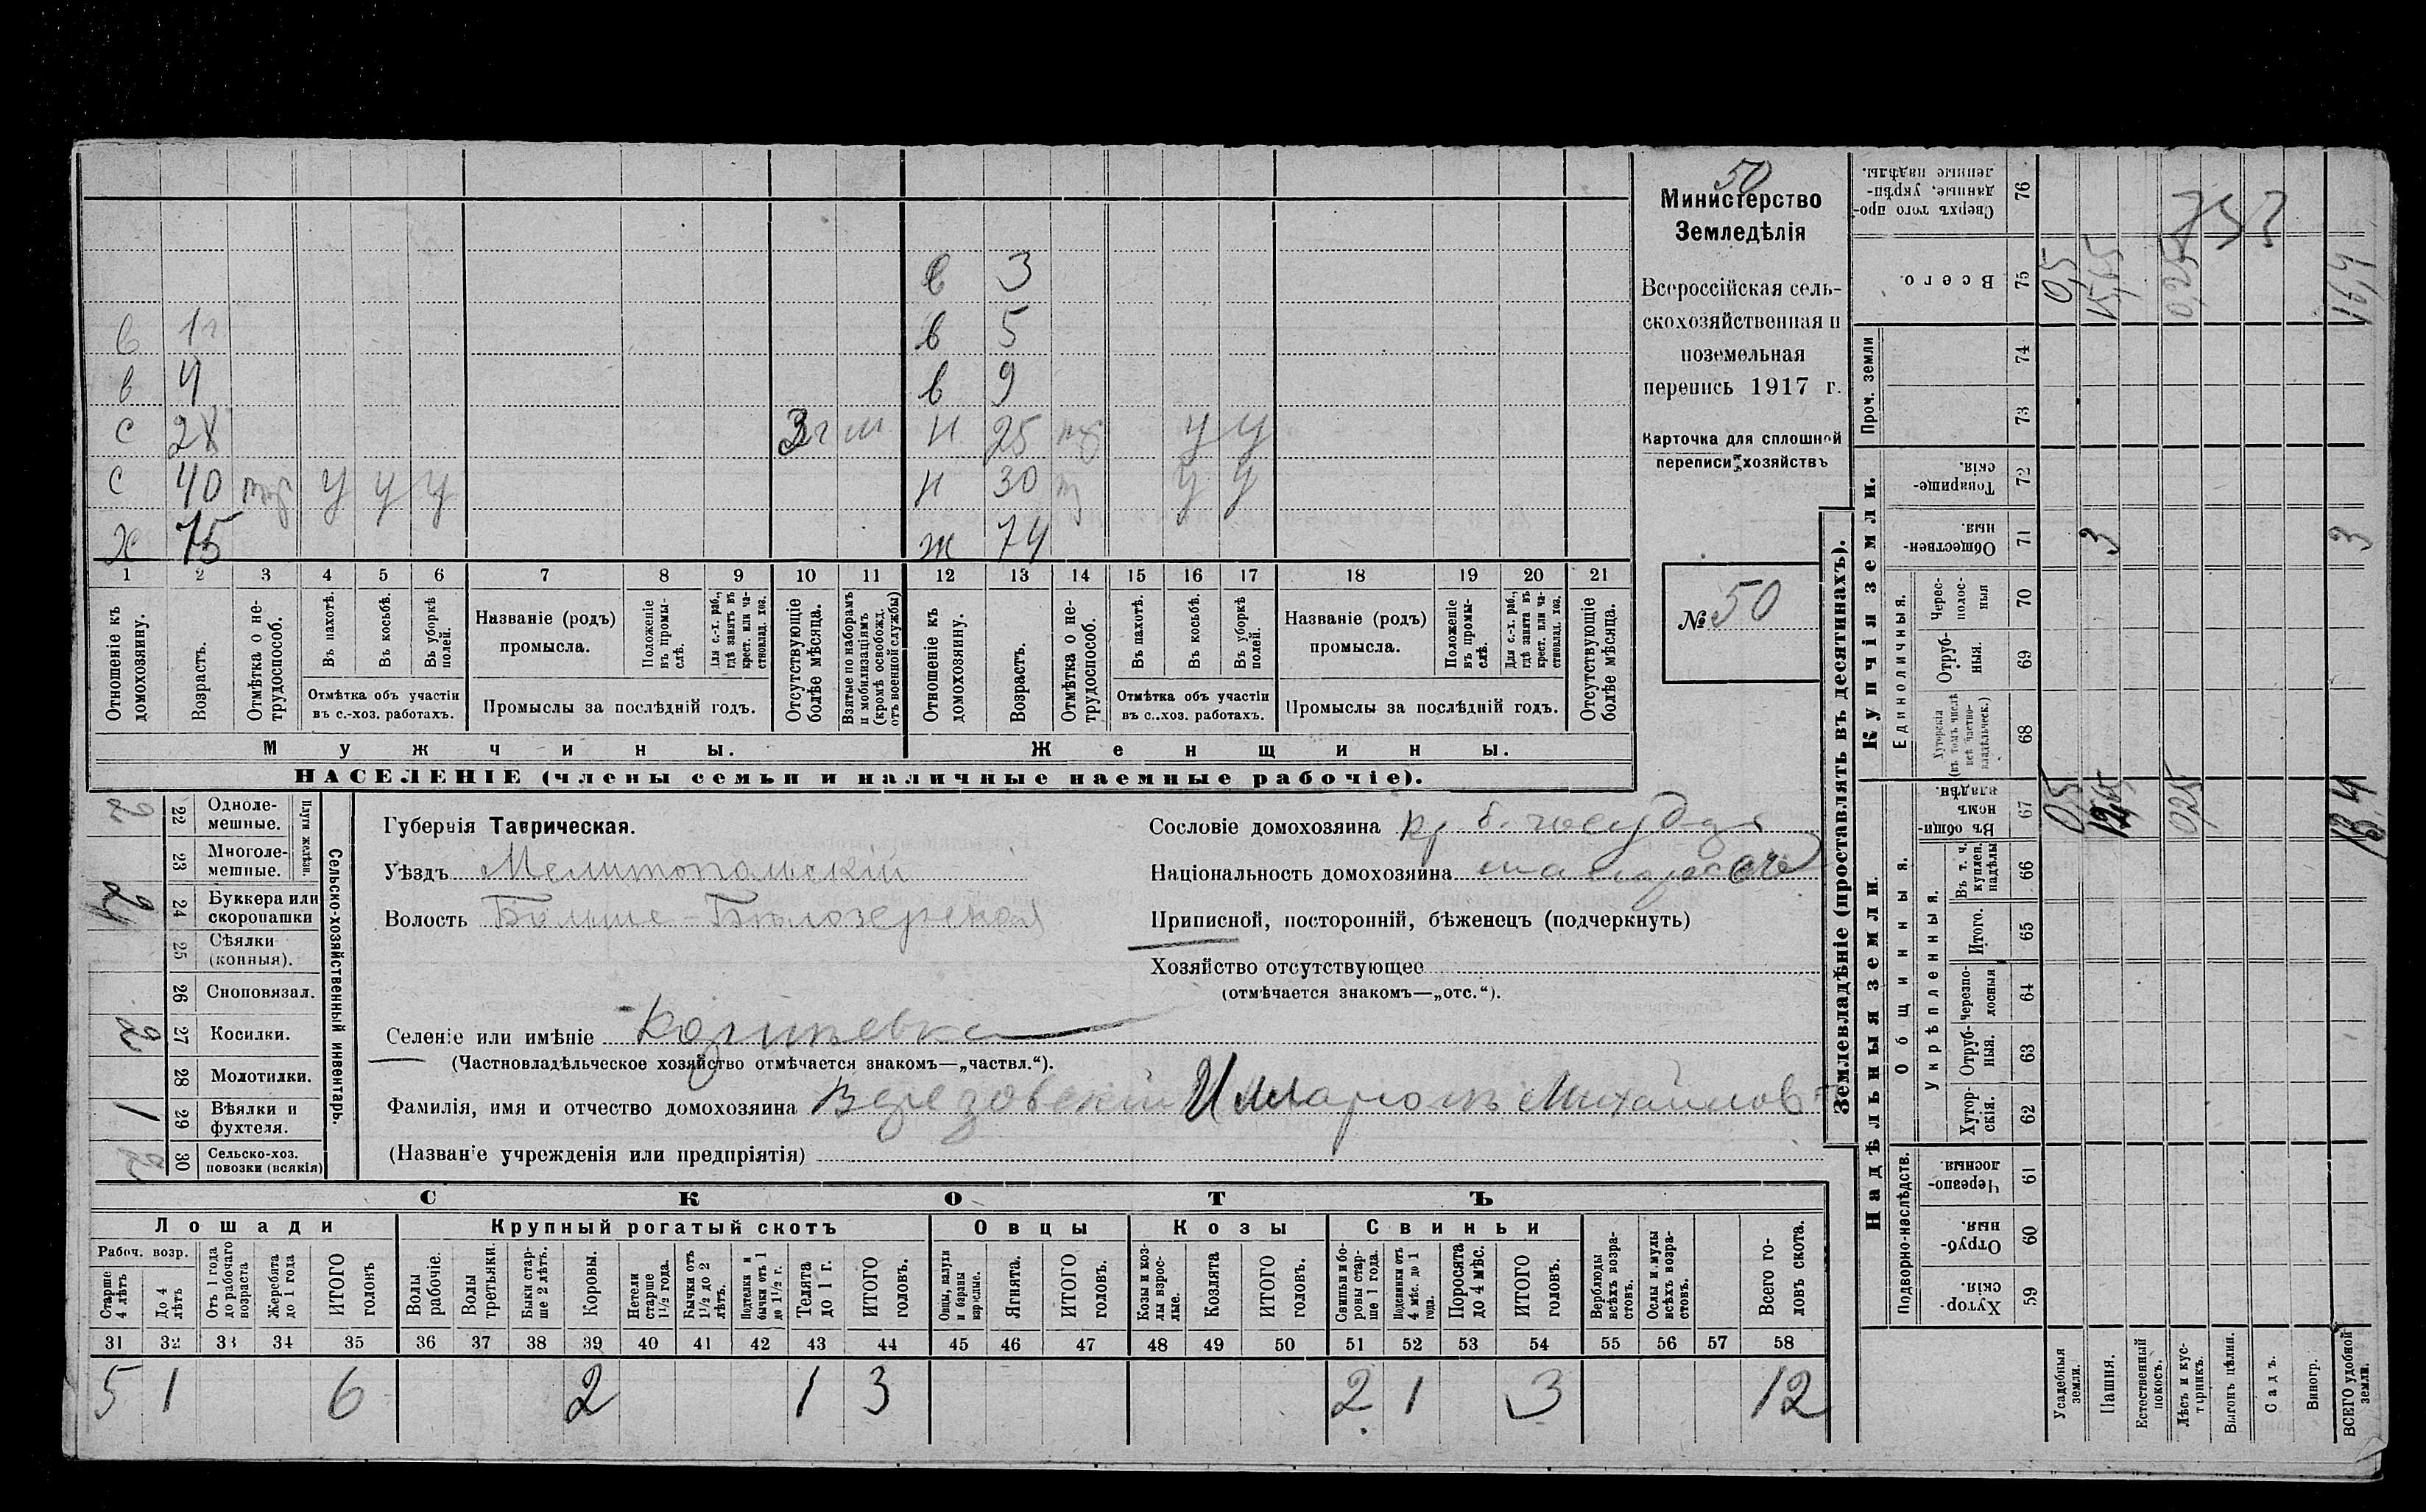 50
Министерство
Земледѣлія
Всероссійская сель-
скохозяйственная и
поземельная
перепись 1917 г.
Карточка для сплошной
переписи хозяйствъ
№ 50
в 3
в 1г в 5
в 4 в 9
с 28 3г м н 25 у у
с 40 у у у н 30 у у
х 75 ж 74
1 2 3 4 5 6 7 8 9 10 11 12 13 14 15 16 17 18 19 20 21
Отношеніе къ домохозяину.
Возрастъ.
Отмѣтка о не-трудоспособ.
Въ пахотѣ.
Въ косьбѣ.
Въ уборкѣ полей.
Отмѣтка объ участіи
въ с.-хоз. работахъ.
Названіе (родъ)
промысла.
Положеніе въ промы-слѣ.
Для с.-х. раб., гдѣ занятъ въ крест. или ча-стновлад. хоз.
Промыслы за послѣдній годъ.
Отсутствующіе болѣе мѣсяца.
Взятые по наборамъ и мобилизаціямъ (кромѣ освобожд. отъ военной службы)
Отношеніе къ домохозяину.
Возрастъ.
Отмѣтка о не-трудоспособ.
Въ пахотѣ.
Въ косьбѣ.
Въ уборкѣ полей.
Отмѣтка объ участіи
въ с.-хоз. работахъ.
Названіе (родъ)
промысла.
Положеніе въ промы-слѣ.
Для с.-х. раб., гдѣ занята въ крест. или ча-стновлад. хоз.
Промыслы за послѣдній годъ.
Отсутствующіе болѣе мѣсяца.
Мужчины. Женщины.
НАСЕЛЕНІЕ (члены семьи и наличные наемные рабочіе).
Сельско-хозяйственный инвентарь.
Плуги желѣзн.
2 22 Одноле-мешные.
23 Многоле-мешные.
24 Буккера или скоропашки
25 Сѣялки (конныя).
26 Сноповязал.
2 27 Косилки.
28 Молотилки.
1 29 Вѣялки и фухтеля.
2 30 Сельско-хоз. повозки (всякія)
Губернія Таврическая.
Уѣздъ Мелитопольскій
Волость Больше-Бѣлозерская
Селеніе или имѣніе
(Частновладѣльческое хозяйство отмѣчается знакомъ—„частвл.“).
Фамилія, имя и отчество домохозяина Верезовскій Илларіонъ Михайлов
(Названіе учрежденія или предпріятія)
Сословіе домохозяина кр б. государ
Національность домохозяина малоросс
Приписной, посторонній, бѣженецъ (подчеркнуть)
Хозяйство отсутствующее
(отмѣчается знакомъ—„отс.“).
СКОТЪ
Лошади Крупный рогатый скотъ Овцы Козы Свиньи
Рабоч. возр.
Старше 4 лѣтъ
До 4 лѣтъ
Отъ 1 года до рабочаго возраста
Жеребята до 1 года
ИТОГО головъ
Волы рабочіе.
Волы третьяки.
Быки стар-ше 2 лѣтъ.
Коровы.
Нетели старше 1½ года.
Бычки отъ 1½ до 2 лѣтъ.
Подтелки и бычки отъ 1 до 1½ г.
Телята до 1 г.
ИТОГО головъ.
Овцы, валухи и бараны взрослые.
Ягнята.
ИТОГО головъ.
Козы и коз-лы взрос-лые.
Козлята
ИТОГО головъ.
Свиньи и бо-ровы стар-ше 1 года.
Подсвинки отъ 4 мѣс. до 1 года.
Поросята до 4 мѣс.
ИТОГО головъ.
Верблюды всѣхъ возра-стовъ.
Ослы и мулы всѣхъ возра-стовъ.
Всего го-ловъ скота.
31 32 33 34 35 36 37 38 39 40 41 42 43 44 45 46 47 48 49 50 51 52 53 54 55 56 57 58
5 1 6 2 1 3 2 1 3 12
Землевладѣніе (проставлять въ десятинахъ).
Надѣльныя земли. Купчія земли. Проч. земли
Подворно-наслѣдств. Общинныя. Единоличныя.
Укрѣпленныя.
Сверхъ того про-данные, укрѣп-ленные надѣлы. 76
Всего. 75 0,5 15,65 0,25 16,4
74
73
Товарище-скія. 72
Обществен-ныя. 71 3 3
Черес-полос-ныя 70
Отруб-ныя. 69
Хуторскія (въ томъ числѣ всѣ частно-владѣльческ.) 68
Въ общин-номъ владѣн. 67 0,5 0,25 13,4
Въ т. ч. куплен. надѣлы 66
Итого. 65
Черезпо-лосныя 64
Отруб-ныя. 63
Хутор-скія. 62
Черезпо-лосныя. 61
Отруб-ныя. 60
Хутор-скія. 59
Усадебныя земли.
Пашня.
Естественный покосъ.
Лѣсъ и кус-тарникъ.
Выгонъ цѣлин.
Садъ.
Виногр.
ВСЕГО удобной земли.